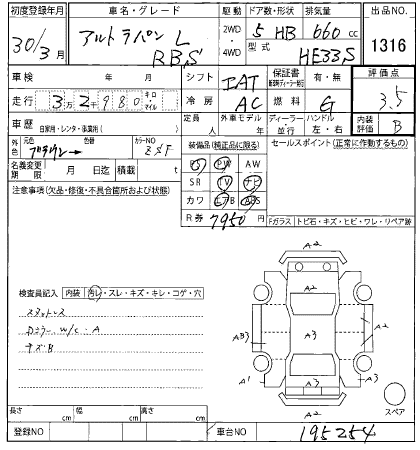 初度登録年月 車名・グレード 駆動 ドア数・形状 排気量 出品NO.
30/3月 アルトラパン L R.B.S 2WD・4WD 5 HB 660cc 1316
型式 HE33S
車検 年 月 シフト IAT 保証書 有・無 評価点
走行 3万2千980 キロ・マイル 冷房 AC 燃料 G 3.5
車歴 自家用・レンタ・事業用( ) 定員 人 外車モデル 年 ディーラー・並行 ハンドル 左・右 内装評価 B
外色 元色 色替 カラーNO ZSF 装備品(純正品に限る) セールスポイント(正常に作動するもの)
PS PW AW
名義変更期限 月 日迄 積載 t SR TV ナビ
注意事項(欠品・修復・不具合箇所および状態) カワ エアB ABS
R券 7950円
Fガラス トビ石・キズ・ヒビ・ワレ・リペア跡
A2
A2
検査員記入 内装 汚レ・スレ・キズ・キレ・コゲ・穴
スタットレス
Dミラー W/C・A
キズB
AB3 A3 A2
A1 A3 A3
A2
スペア
長さ cm 幅 cm 高さ cm
登録NO 車台NO 195254